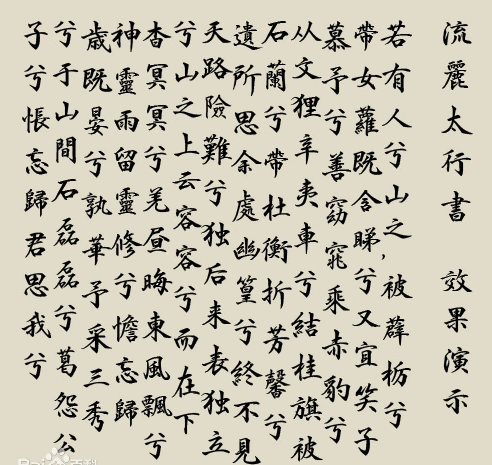 流麗太行書 效果演示
若有人兮山之,被薜栃兮
帶女蘿既舍睇兮又宜笑子
慕予兮善窈窕乘赤豹兮
从文狸辛夷車兮結桂旗被
石蘭兮帶杜衡折芳馨兮
遺所思余處幽篁兮終不見
天路險難兮独后来表独立
兮山之上云容容兮而在下
杳冥冥兮羌昼晦東風飄兮
神靈雨留靈修兮憺忘歸
歲既晏兮孰華予采三秀
兮于山間石磊磊兮葛怨公
子兮悵忘歸君思我兮